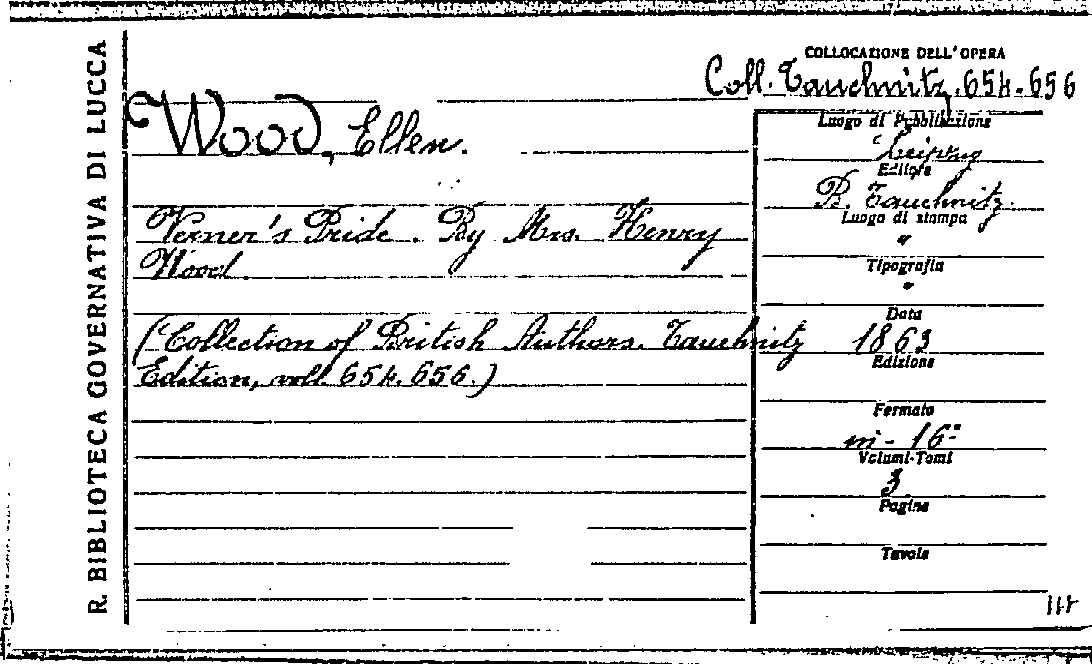 R. BIBLIOTECA GOVERNATIVA DI LUCCA
COLLOCAZIONE DELL'OPERA
Coll. Tauchnitz. 654-656
Wood, Ellen.
Verner's Pride. By Mrs. Henry
Wood.
(Collection of British Authors. Tauchnitz
Edition, voll. 654-656.)
Luogo di Pubblicazione
Leipzig
Editore
B. Tauchnitz.
Luogo di stampa
"
Tipografia
"
Data
1863
Edizione
Formato
in-16°
Volumi-Tomi
3
Pagine
Tavole